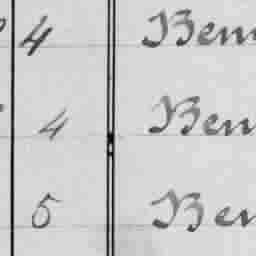 4 Ben
4 Ben
5 Ben